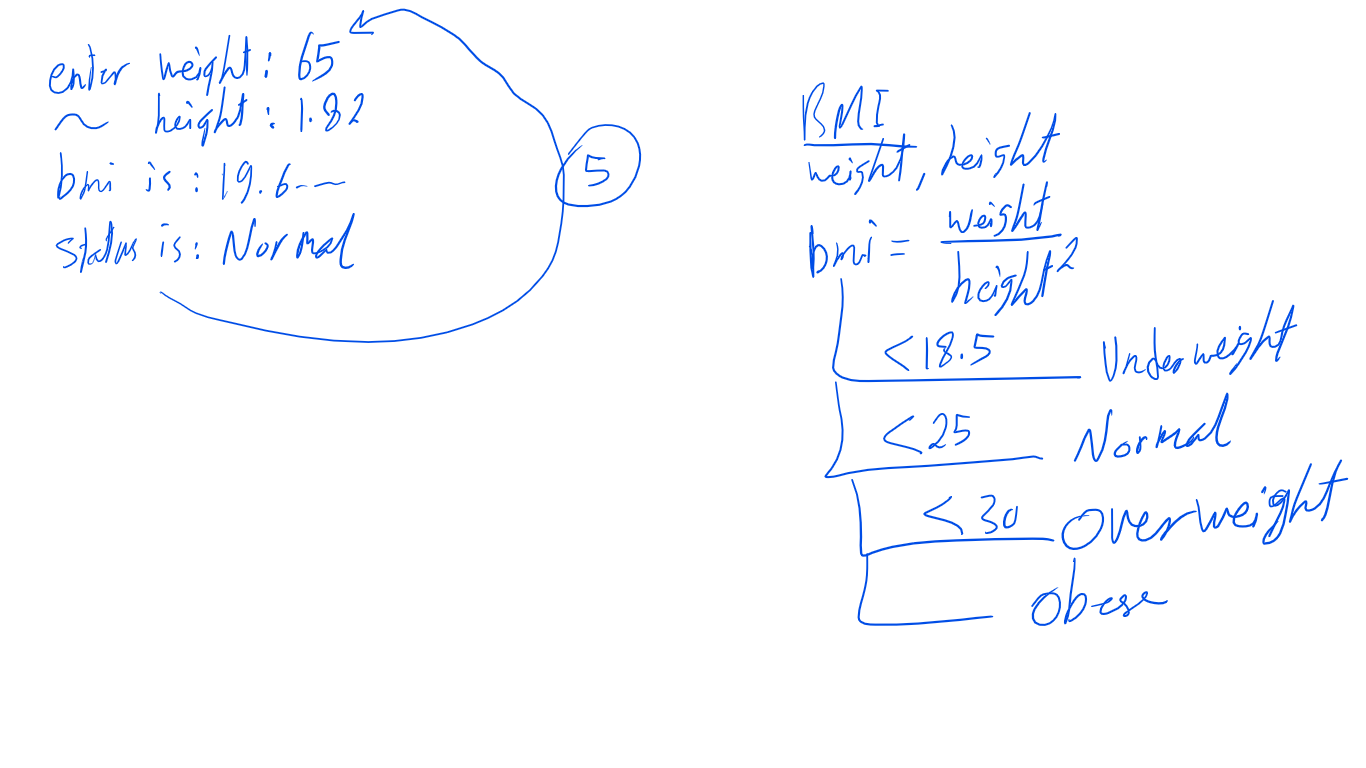 enter weight: 65
~ height: 1.82
bmi is: 19.6---
status is: Normal
5
BMI
weight, height
bmi = weight
height²
<18.5 Underweight
<25 Normal
<30 Overweight
Obese